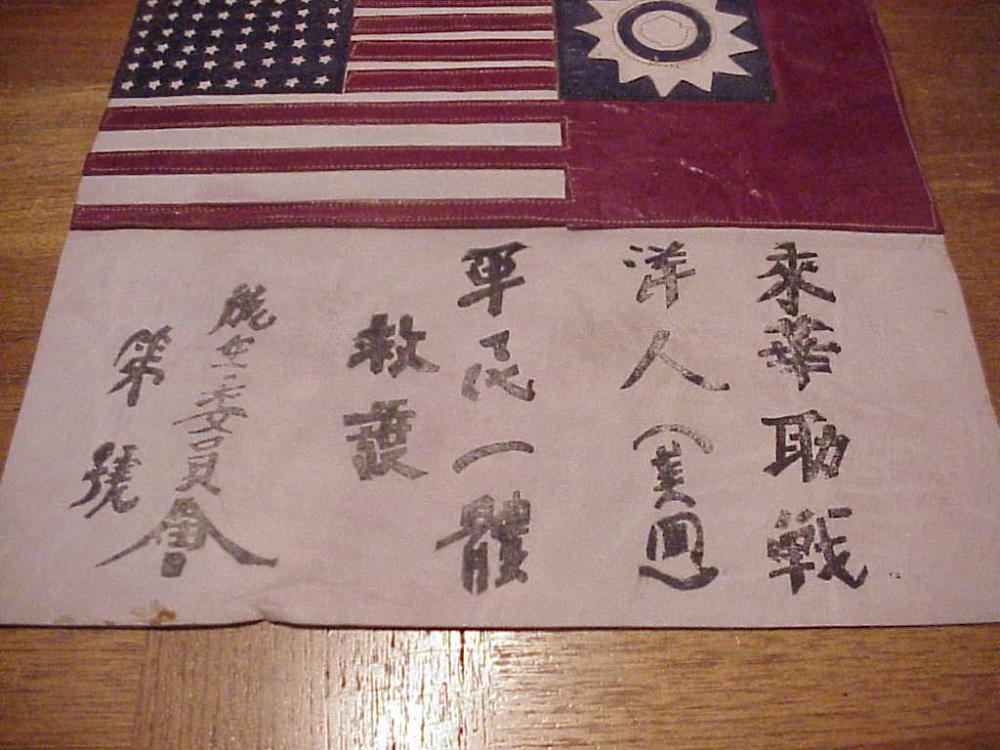 來華助戰
洋人（美國）
軍民一體
救護
航空委員會
第 號